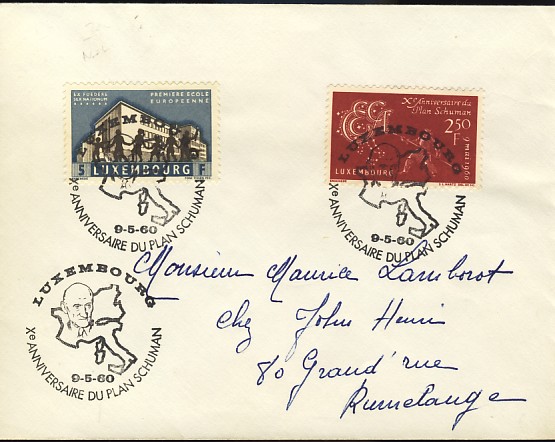 LE FOEDERE
SER NATIONUM
PREMIÈRE ÉCOLE
EUROPÉENNE
5 LUXEMBOURG F
LUXEMBOURG
9-5-60
Xe ANNIVERSAIRE DU PLAN SCHUMAN
Xe Anniversaire du
Plan Schuman
2.50
F
9 mai 1960
LUXEMBOURG
LUXEMBOURG
9-5-60
Xe ANNIVERSAIRE DU PLAN SCHUMAN
LUXEMBOURG
9-5-60
Xe ANNIVERSAIRE DU PLAN SCHUMAN
Monsieur Maurice Lamborot
chez John Henri
80 Grand'rue
Rumelange